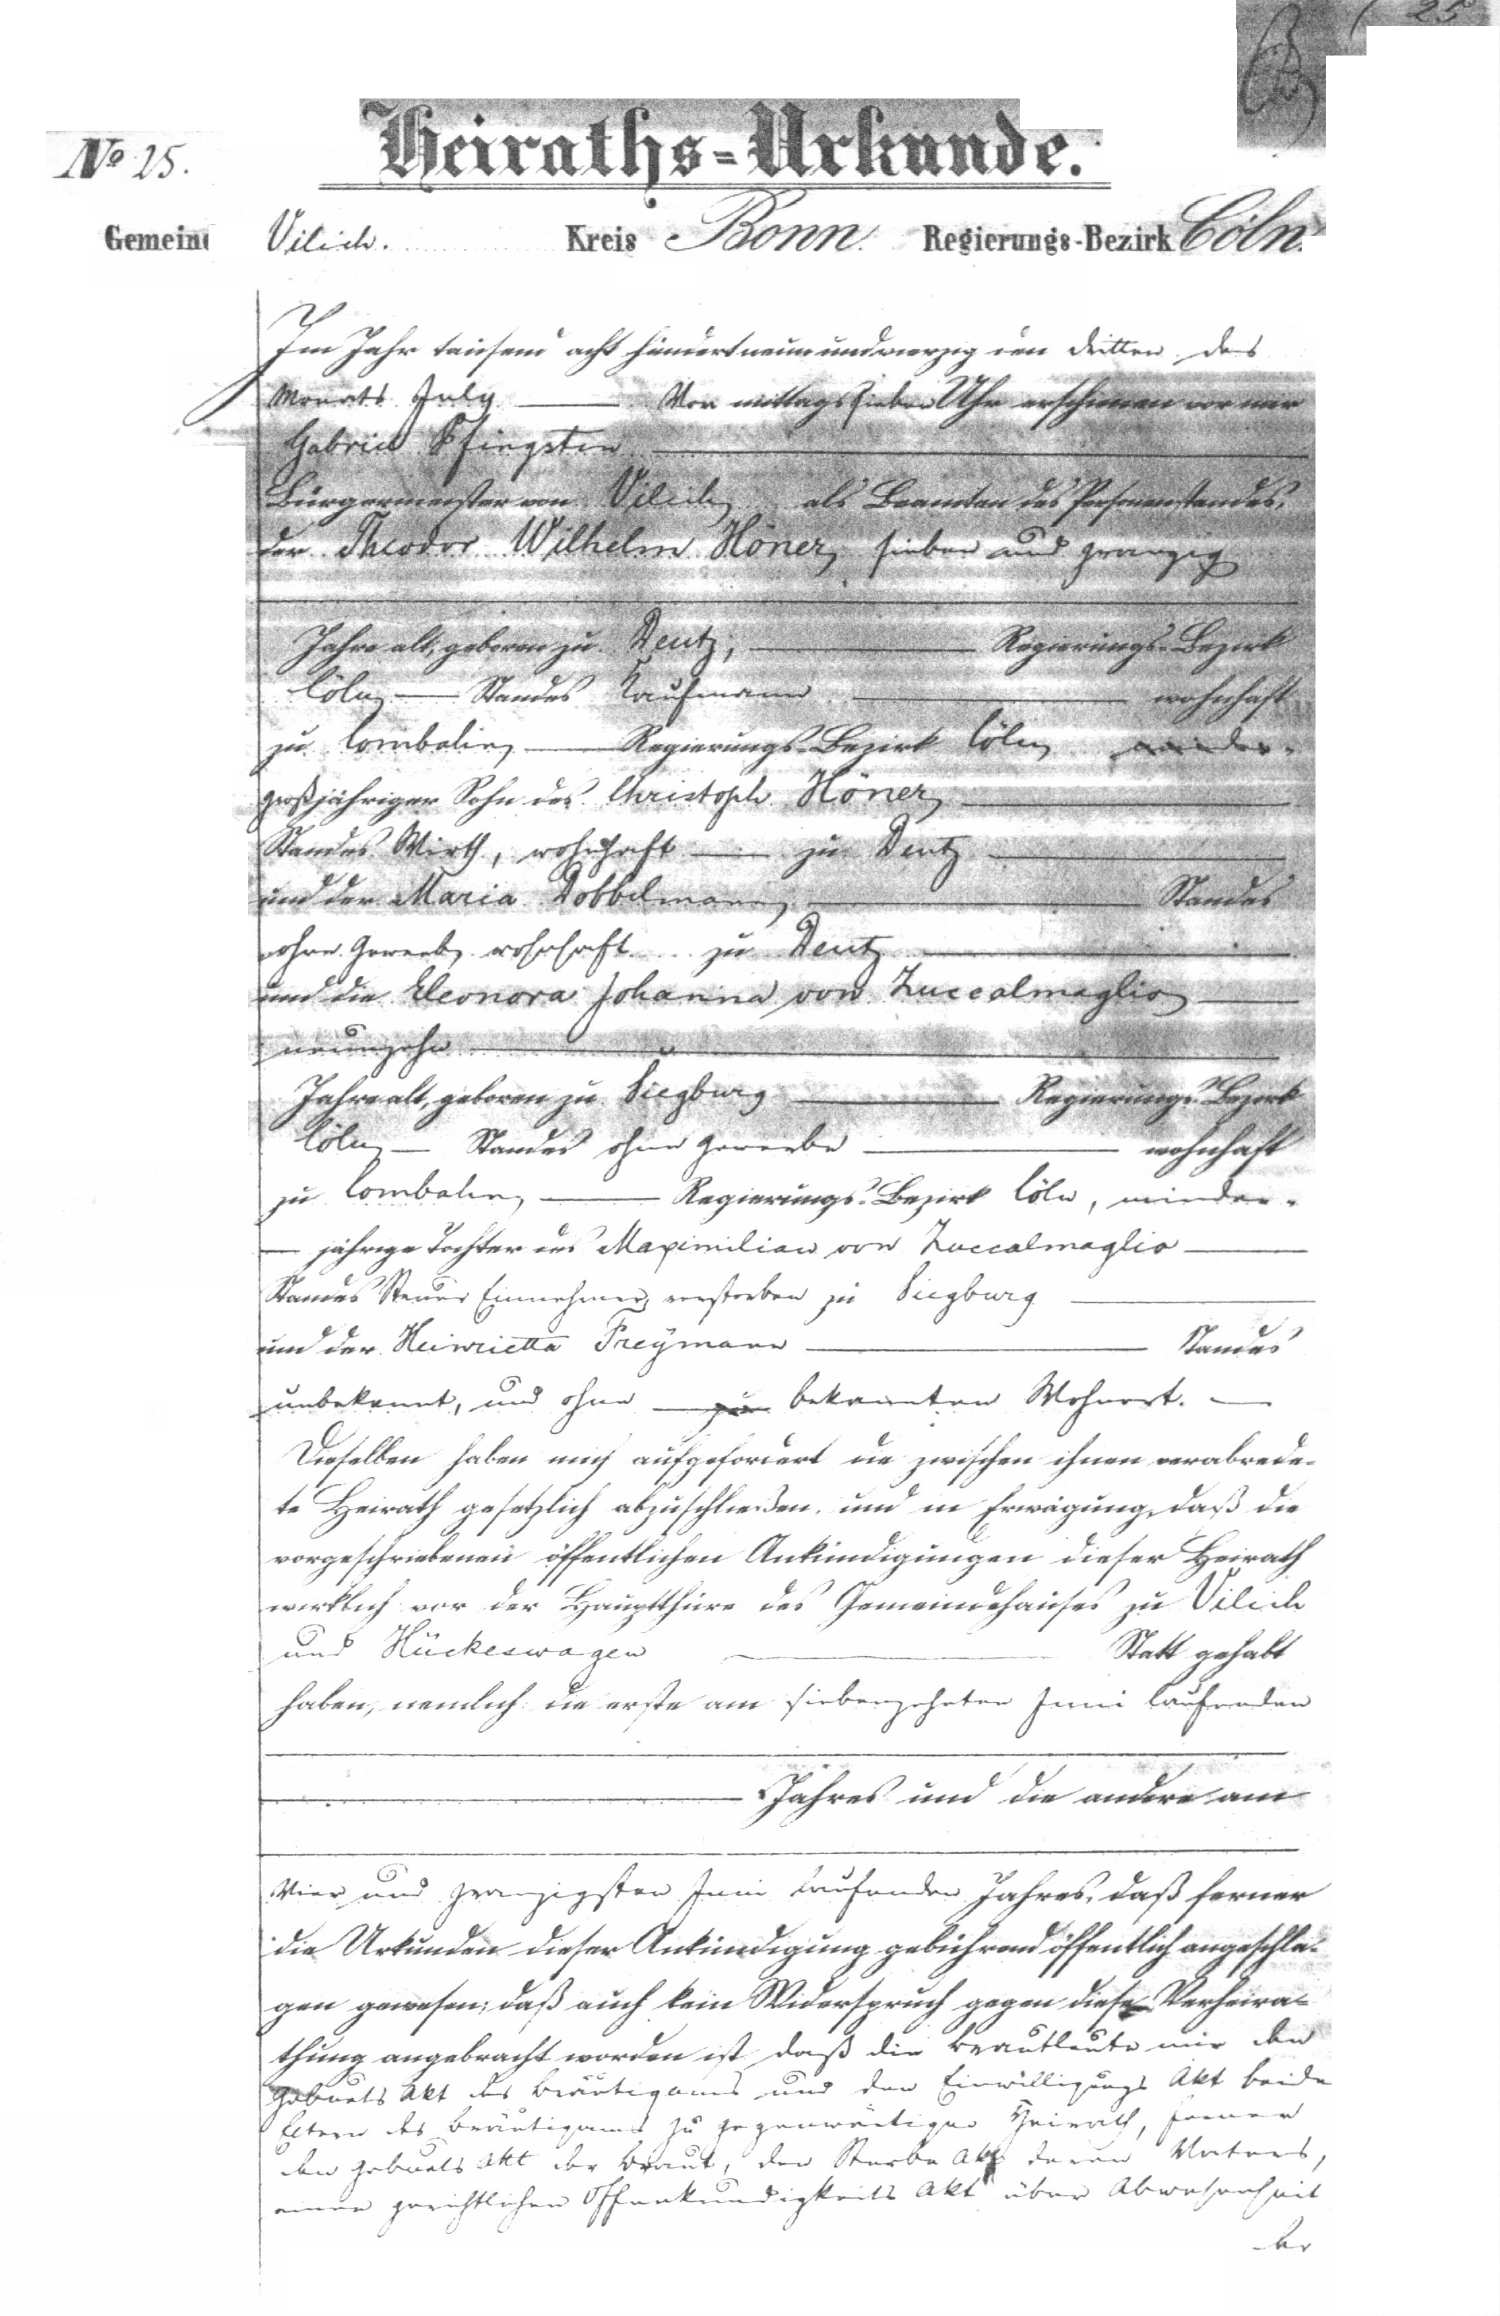 25
Nº 25.
Heiraths-Urkunde.
Gemeind Vilich. Kreis Bonn. Regierungs-Bezirk Cöln.
Im Jahr tausend acht hundert neun und vierzig den dritten des
Monats July Vor mittags sieben Uhr erschienen vor mir
Gabriel Pfingsten
Bürgermeister von Vilich als Beamten des Personenstandes,
der Theodor Wilhelm Höner, sieben und zwanzig
Jahre alt, geboren zu Deutz, Regierungs-Bezirk
Cöln, Standes Kaufmann wohnhaft
zu Combeln, Regierungs-Bezirk Cöln
großjähriger Sohn des Christoph Höner,
Standes Wirth, wohnhaft zu Deutz
und der Maria Dobbelmann, Standes
ohne Gewerb, wohnhaft zu Deutz
und die Eleonora Johanna von Zuccalmaglio,
neunzehn
Jahre alt, geboren zu Siegburg Regierungs-Bezirk
Cöln, Standes ohne Gewerbe wohnhaft
zu Combeln, Regierungs-Bezirk Cöln, minder-
jährige Tochter des Maximilian von Zuccalmaglio
Standes Steuer Einnehmer, verstorben zu Siegburg
und der Heinrietta Freÿmann Standes
unbekannt, und ohne zu bekannten Wohnort.
Dieselben haben mich aufgefordert die zwischen ihnen verabrede-
te Heirath gesetzlich abzuschließen, und in Erwägung, daß die
vorgeschriebenen öffentlichen Ankündigungen dieser Heirath
wirklich vor der Hauptthüre des Gemeindehauses zu Vilich
und Hückeswagen Statt gehabt
haben, nemlich die erste am siebenzehnten Juni laufenden
Jahres und die andere am
Vier und zwanzigsten Juni laufenden Jahres, daß ferner
die Urkunden dieser Ankündigung gebührend öffentlich angeschla-
gen gewesen; daß auch kein Widerspruch gegen diese Verheira-
thung angebracht worden ist daß die Brautleute mir den
Geburts Akt des Bräutigams und den Einwilligungs Akt beide
Eltern des Bräutigams zu gegenwärtiger Heirath, ferner
den Geburts Akt der Braut, den Sterbe Akt deren Vaters,
einen gerichtlichen Offenkundigkeits Akt über Abwesenheit
der